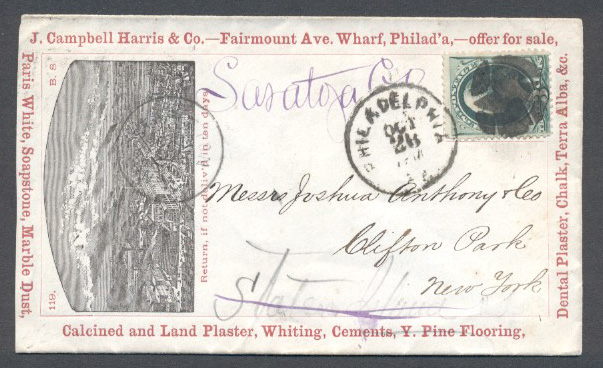 J. Campbell Harris & Co.—Fairmount Ave. Wharf, Philad'a,—offer for sale,
Paris White, Soapstone, Marble Dust,
B. S.
119.
Return, if not deliv'd in ten days
Saratoga Co
PHILADELPHIA
OCT
28
PA.
Messrs Joshua Anthony & Co
Clifton Park
New York
Staten Island
Dental Plaster, Chalk, Terra Alba, &c.
Calcined and Land Plaster, Whiting, Cements, Y. Pine Flooring,